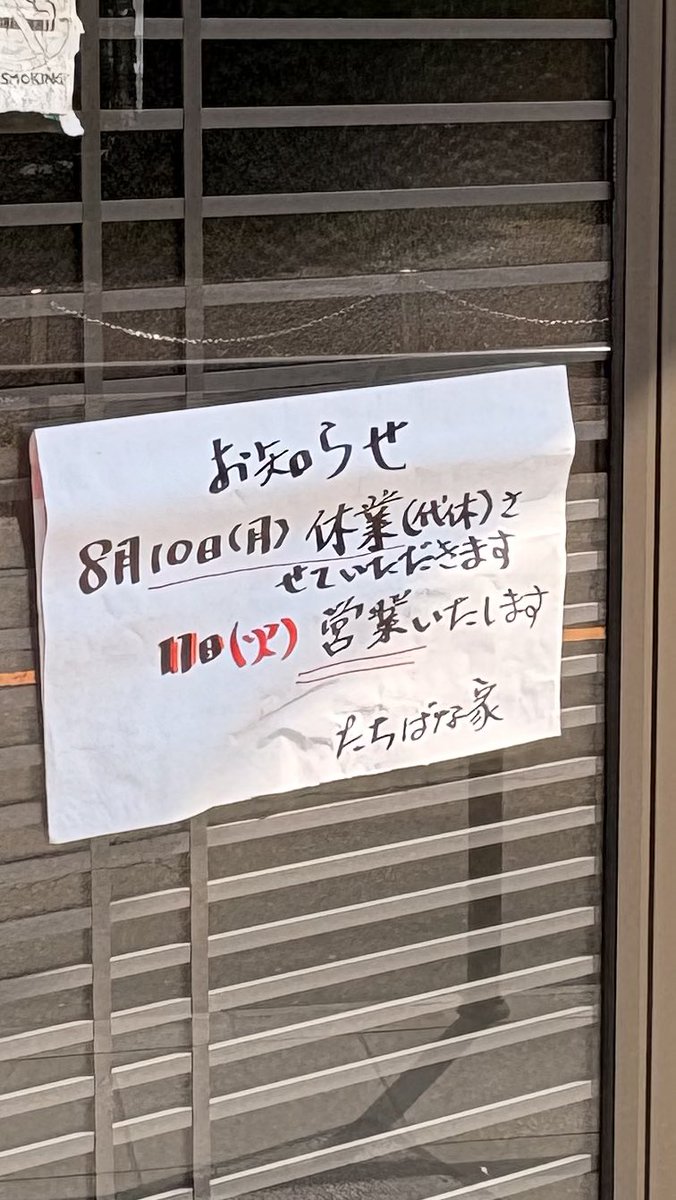 SMOKING
お知らせ
8月10日(月) 休業(代休)さ
せていただきます
11日(火) 営業いたします
たちばな家